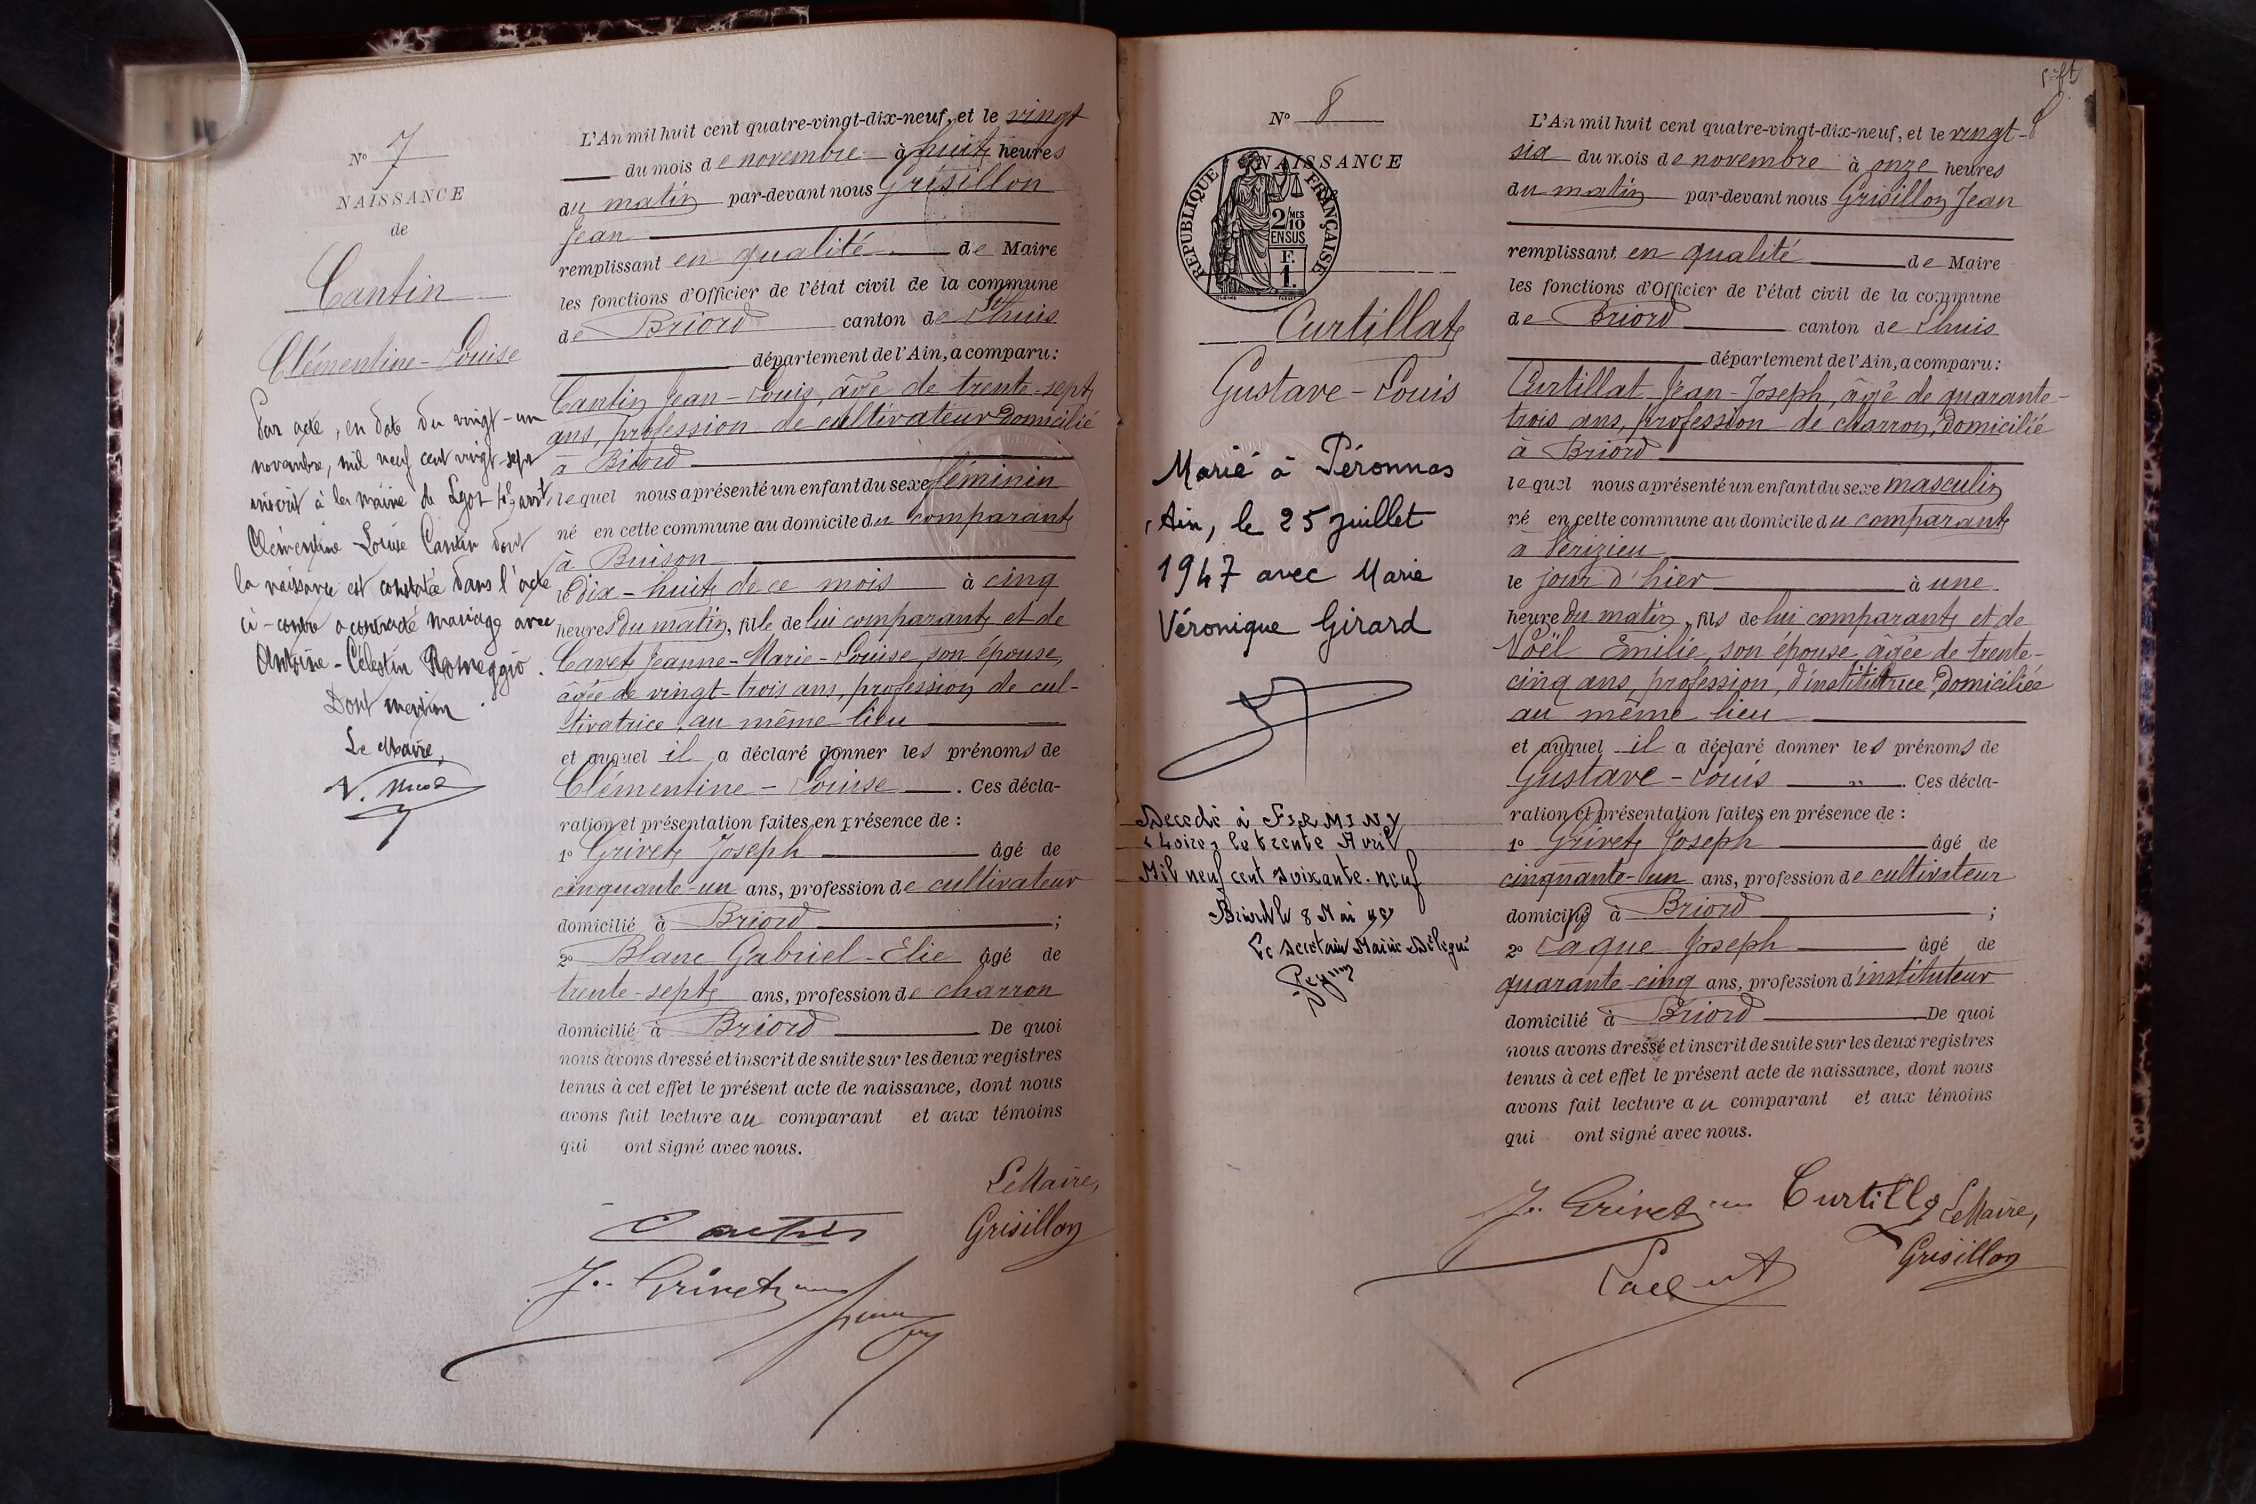 N° 7
NAISSANCE
de
Cantin
Clémentine-Louise
Par acte, en date du vingt-un
novembre, mil neuf cent vingt-sept
inscrit à la mairie de Lyon
Clémentine-Louise Cantin dont
la naissance est constatée dans l'acte
ci-contre a contracté mariage avec
Antoine-Célestin Romeggio.
Dont mention.
Le Maire,
L'An mil huit cent quatre-vingt-dix-neuf, et le vingt
du mois de novembre à huit heures
du matin par-devant nous Grisillon
Jean
remplissant en qualité de Maire
les fonctions d'Officier de l'état civil de la commune
de Briord canton de Lhuis
département de l'Ain, a comparu:
Cantin Jean-Louis, âgé de trente-sept
ans, profession de cultivateur domicilié
à Briord
lequel nous a présenté un enfant du sexe féminin
né en cette commune au domicile du comparant
à Buison
le dix-huit de ce mois à cinq
heures du matin, fille de lui comparant et de
Cavet Jeanne-Marie-Louise, son épouse,
âgée de vingt-trois ans, profession de cul-
tivatrice, au même lieu
et auquel il a déclaré donner les prénoms de
Clémentine-Louise. Ces décla-
ration et présentation faites en présence de :
1° Grivet Joseph âgé de
cinquante-un ans, profession de cultivateur
domicilié à Briord ;
2° Blanc Gabriel-Elie âgé de
trente-sept ans, profession de charron
domicilié à Briord De quoi
nous avons dressé et inscrit de suite sur les deux registres
tenus à cet effet le présent acte de naissance, dont nous
avons fait lecture au comparant et aux témoins
qui ont signé avec nous.
Le Maire,
Cantin Grisillon
J. Grivet
N° 8
NAISSANCE
RÉPUBLIQUE FRANÇAISE
2/10
MES
EN SUS
F.
1.
Curtillat
Gustave-Louis
Marié à Péronnas
Ain, le 25 juillet
1947 avec Marie
Véronique Girard
Décédé à FIRMINY
(Loire) le trente Avril
Mil neuf cent soixante-neuf
Briord le 8 Mai
Le Secrétaire Mairie Délégué
8
L'An mil huit cent quatre-vingt-dix-neuf, et le vingt-
six du mois de novembre à onze heures
du matin par-devant nous Grisillon Jean
remplissant en qualité de Maire
les fonctions d'Officier de l'état civil de la commune
de Briord canton de Lhuis
département de l'Ain, a comparu:
Curtillat Jean-Joseph, âgé de quarante-
trois ans, profession de charron, domicilié
à Briord
lequel nous a présenté un enfant du sexe masculin
né en cette commune au domicile du comparant
à Vérizieu
le jour d'hier à une
heure du matin, fils de lui comparant et de
Noël Emilie, son épouse âgée de trente-
cinq ans, profession, d'institutrice, domiciliée
au même lieu
et auquel il a déclaré donner les prénoms de
Gustave-Louis. Ces décla-
ration et présentation faites en présence de :
1° Grivet Joseph âgé de
cinquante-un ans, profession de cultivateur
domicilié à Briord ;
2° Laque Joseph âgé de
quarante-cinq ans, profession d'instituteur
domicilié à Briord De quoi
nous avons dressé et inscrit de suite sur les deux registres
tenus à cet effet le présent acte de naissance, dont nous
avons fait lecture au comparant et aux témoins
qui ont signé avec nous.
J. Grivet Curtillat Le Maire,
Grisillon